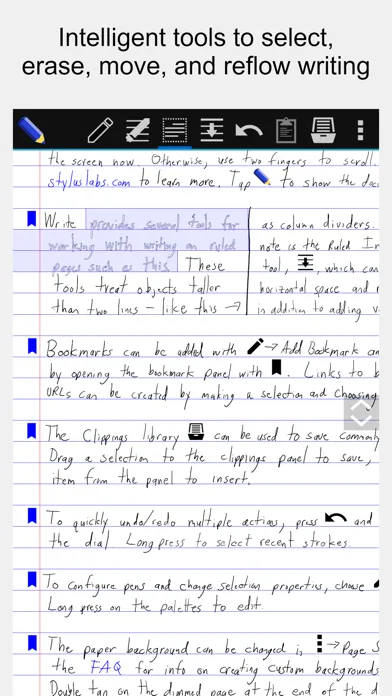 Intelligent tools to select,
erase, move, and reflow writing
the screen now. Otherwise, use two fingers to scroll.
styluslabs.com to learn more. Tap to show the doc
Write provides several tools for
working with writing on ruled
pages such as this. These
tools treat objects taller
than two lines – like this →
as column dividers.
note is the Ruled In
tool, , which can
horizontal space and r
in addition to adding v
Bookmarks can be added with → Add Bookmark an
by opening the bookmark panel with . Links to b
URLs can be created by making a selection and choosing
The Clippings library can be used to save commonly
Drag a selection to the clippings panel to save,
item from the panel to insert.
To quickly undo/redo multiple actions, press and
the dial. Long press to select recent strokes.
To configure pens and change selection properties, choose
Long press on the palettes to edit.
The paper background can be changed in → Page S
the FAQ for info on creating custom backgrounds
Double tap on the dimmed page at the end of the d